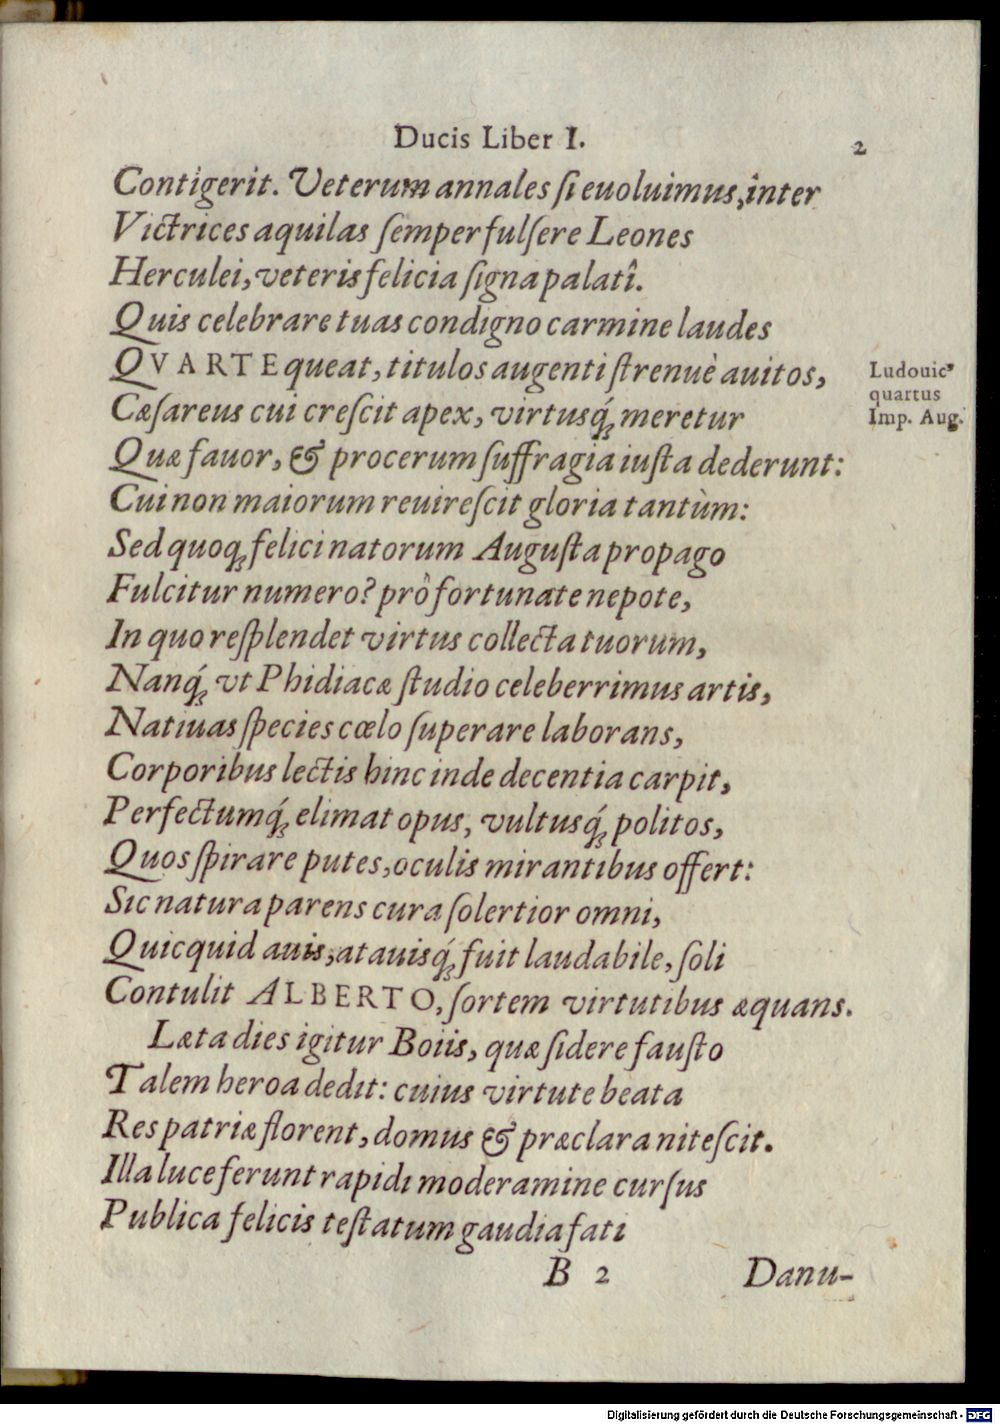 Ducis Liber I.
2
Contigerit. Veterum annales ſi euoluimus, înter
Victrices aquilas ſemper fulſere Leones
Herculei, veteris felicia ſigna palatî.
Quis celebrare tuas condigno carmine laudes
QVARTE queat, titulos augenti ſtrenuè auitos,
Ludouic⁹
quartus
Imp. Aug.
Cæſareus cui creſcit apex, virtusq́; meretur
Quæ fauor, & procerum ſuffragia iuſta dederunt:
Cui non maiorum reuireſcit gloria tantùm:
Sed quoq; felici natorum Auguſta propago
Fulcitur numero? prô fortunate nepote,
In quo reſplendet virtus collecta tuorum,
Nanq́; vt Phidiacæ ſtudio celeberrimus artis,
Natiuas ſpecies cœlo ſuperare laborans,
Corporibus lectis hinc inde decentia carpit,
Perfectumq́; elimat opus, vultusq́; politos,
Quos ſpirare putes, oculis mirantibus offert:
Sic natura parens cura ſolertior omni,
Quicquid auis, atauisq́; fuit laudabile, ſoli
Contulit ALBERTO, ſortem virtutibus æquans.
Læta dies igitur Boiis, quæ ſidere fauſto
Talem heroa dedit: cuius virtute beata
Res patriæ florent, domus & præclara niteſcit.
Illa luce ferunt rapidi moderamine curſus
Publica felicis teſtatum gaudia fati
B 2
Danu-
Digitalisierung gefördert durch die Deutsche Forschungsgemeinschaft - DFG